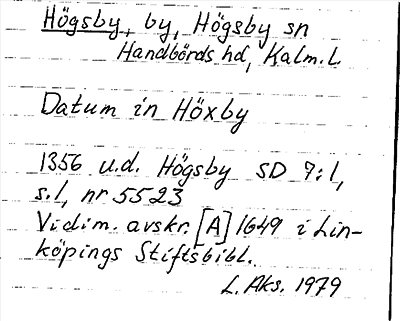 Högsby, by, Högsby sn
Handbörds hd, Kalm. l.
Datum in Höxby
1356 u.d. Högsby SD 7:1,
s.1, nr 5523
Vidim. avskr. [A] 1649 i Lin-
köpings Stiftsbibl.
L. Aks. 1979